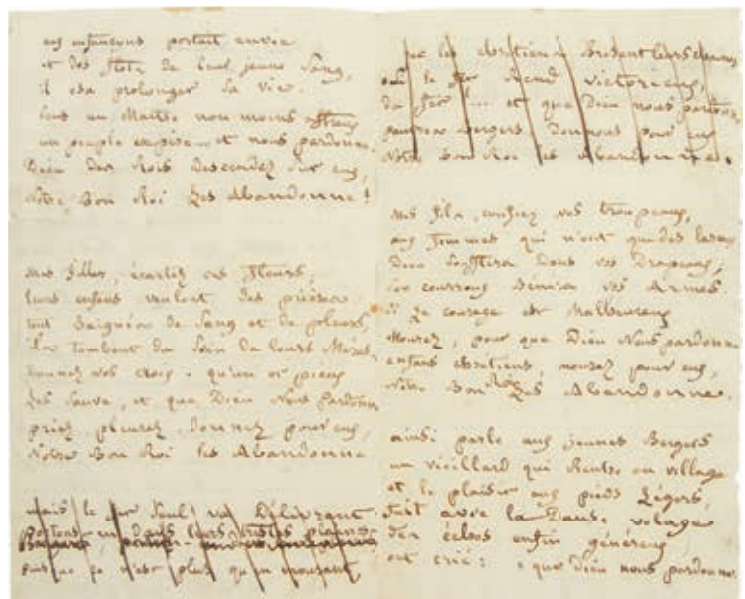 aux enfançons portait envie
et des flots de leur jeune sang,
il osa prolonger sa vie.
sous un Maître non moins affreux
un peuple expire et nous pardonne
Dieu des Rois descendez sur eux,
Notre Bon Roi les Abandonne!
Mes filles, écartez ces fleurs,
leurs enfans veulent des prières
tout Baignés de Sang et de pleurs,
ils tombent du Sein de leurs Mères
donnez vos croix, qu'un or pieux
les sauve, et que Dieu Nous pardonne,
priez, pleurez, donnez pour eux,
Notre Bon Roi les Abandonne
mais le fer seul va Délivrant
portons dans leurs tristes plaines
puisque ce n'est plus qu'en mourant
que les chrétiens Brisent leurs chaines
où le fer Rend victorieux,
du fer!... et que Dieu nous pardonne,
pauvres bergers Donnons pour eux
Notre Bon Roi les Abandonne.
Mes fils, confiez vos troupeaux,
aux femmes qui n'ont que des larmes
Dieu soufflera Dans vos Drapeaux,
son courroux Bénira vos Armes.
si le courage est Malheureux
Mourez, pour que Dieu Nous pardonne
enfans chrétiens, mourez pour eux,
Notre Bon Roi les Abandonne.
ainsi parle aux jeunes Bergers
un vieillard qui Rentre au village
et le plaisir aux pieds légers,
fuit avec la Danse volage
des échos enfin généreux
ont crié: que Dieu nous pardonne